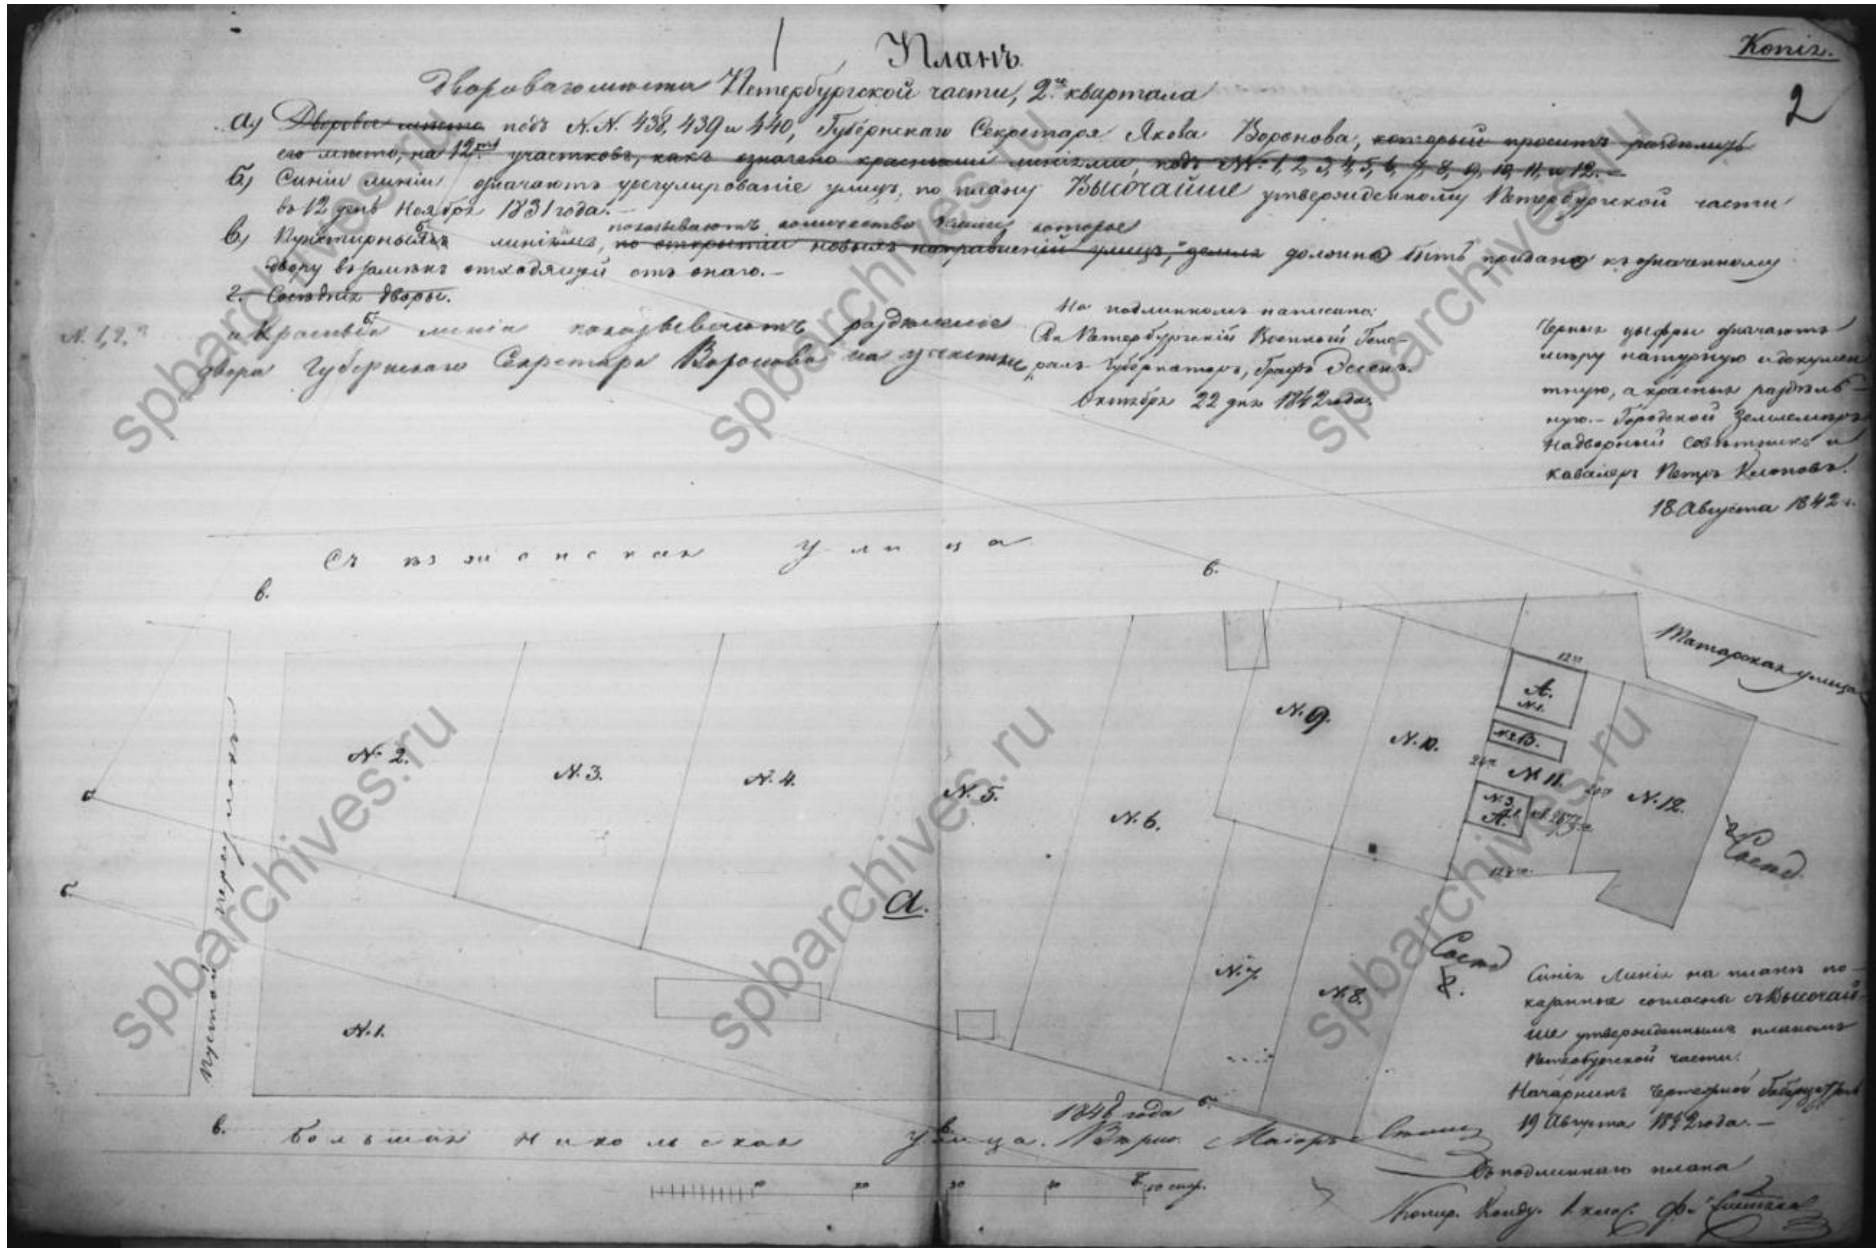 Копія.
2
Планъ
двороваго мѣста Петербургской части, 2го квартала
а) Дворовое мѣсто подъ N.N. 438, 439 и 440, Губернскаго Секретаря Якова Воронова, который проситъ раздѣлить
его мѣсто, на 12ть участковъ, какъ означено красными линіями, подъ №: 1, 2, 3, 4, 5, 6, 7, 8, 9, 10, 11, и 12.
б) Синіи линіи означаютъ урегулированіе улицъ, по плану Высочайше утвержденному Петербургской части
въ 12 день Ноября 1831 года.
показываютъ количество земли которое
в) Пунктирныя линіями, по открытіи новыхъ направленій улицъ, земля должно быть придано къ означенному
двору въ замѣнъ отходящей отъ онаго.
г. Сосѣдніе дворы.
N. 1, 2, 3
Красныя линіи показываютъ раздѣленіе
двора Губернскаго Секретаря Воронова на участки
На подлинномъ написано:
Петербургскій Военный Гене-
ралъ Губернаторъ, Графъ Эссенъ.
Октября 22 дня 1842 года.
Черныя цыфры означаютъ
мѣру натурную и докумен
тную, а красныя раздѣль-
ную. Городской Землемѣръ
Надворный Совѣтникъ и
кавалеръ Петръ
18 Августа 1842 г.
Съѣзжинская улица
в.
в.
Татарская улица
12
А.
N.1.
N.2.В.
N. 11.
N.3.
А.
N. 2.
N. 3.
N. 4.
N. 5.
N. 6.
N. 9.
N. 10.
N. 12.
г. Сосѣд
а.
N. 7.
N. 8.
Сосѣд
г.
N. 1.
Пустой переулокъ
б
Синія Линіи на планѣ по-
казанныя согласны съ Высочай
ше утвержденнымъ планомъ
Петербургской части.
Начальникъ Чертежной
19 Августа 1842 года.
1846 года
в. Большая Никольская улица. Вѣрно. Маіоръ
10 20 30 40 50 саж.
Съ подлиннаго плана
spbarchives.ru
spbarchives.ru
spbarchives.ru
spbarchives.ru
spbarchives.ru
spbarchives.ru